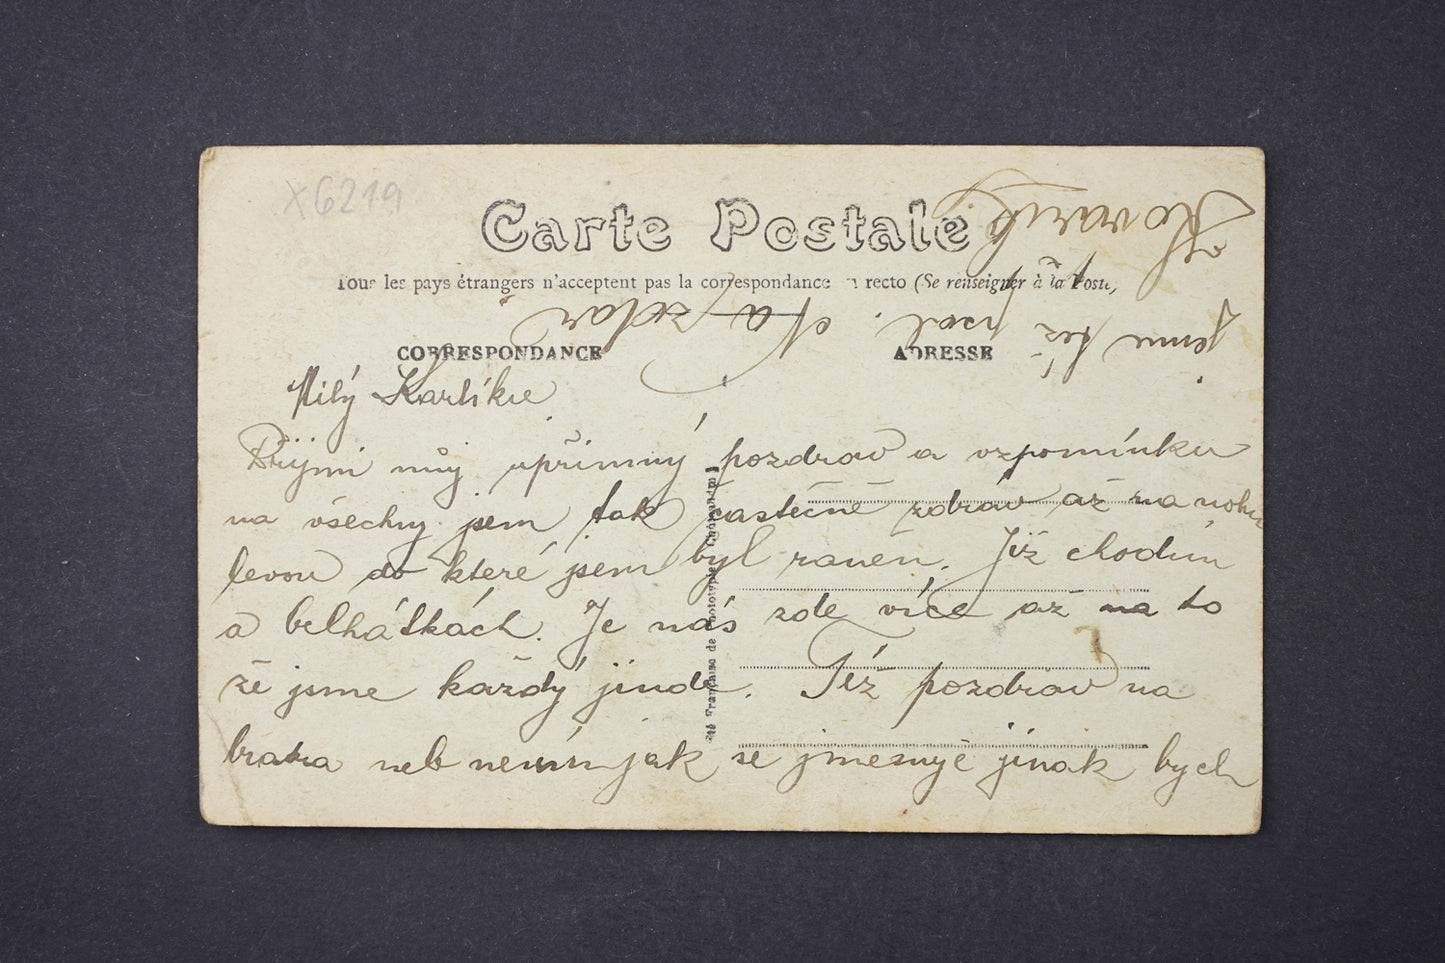 X6219
Carte Postale
Tous les pays étrangers n'acceptent pas la correspondance recto (Se renseigner à la Poste)
CORRESPONDANCE
ADRESSE
Milý Karlíku
Přijmi můj upřímný pozdrav a vzpomínku
na všechny jsem tak častečně zdráv až na nohu
levou do které jsem byl raněn. Již chodím
a belhátkách. Je nás zde více až na to
že jsme každý jinde. Též pozdrav na
bratra neb nevím jak se jmenuje jinak bych
jemu též psal. Na zdar
Kovařík
Française de Phototypie